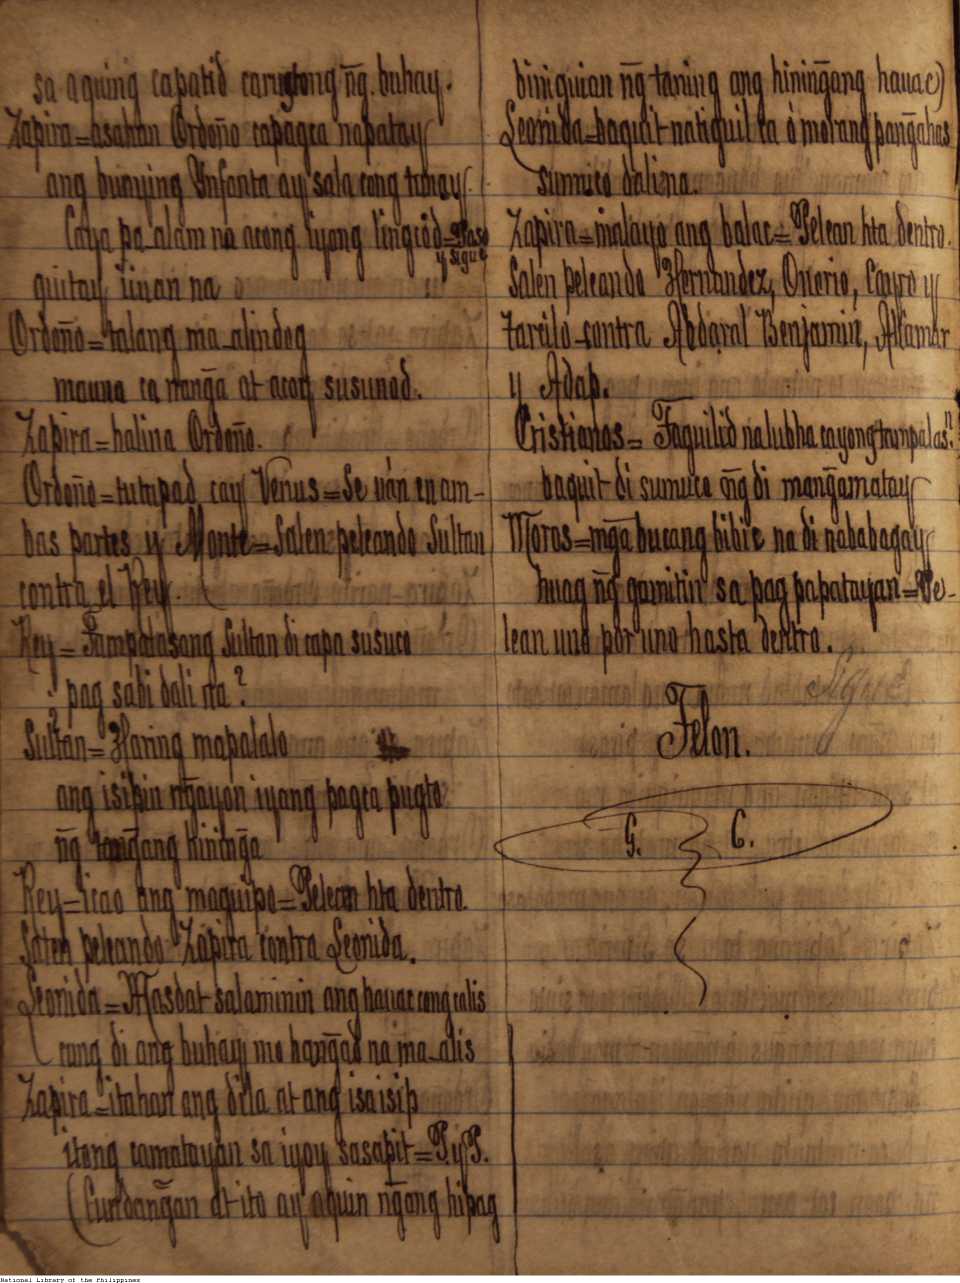 sa aquing capatid carugtong ñg. buhay.
Zapira=asahan Ordoño capagca napatay
ang bunying Ynfanta ay sala cong tunay
Caya pa-alam na acong iyong lingcód=Paso
y sigue
quitay iinan na
Ordoño=talang ma-alindog
mauna ca manga at acoy susunod.
Zapira=halina Ordoño.
Ordoño=tutupad cay Venus=Se ván en am-
bas partes y Monte=Salen peleando Sultan
contra el Rey.
Rey=Tampalasang Sultan di capa susuco
¿pag sabi dali na?
Sultan=Haring mapalalo
ang isipin mgayon iyang pagca pugto
ñg tangang hininga
Rey=icao ang maguipo=Pelean hta dentro.
Salen peleando Zapira contra Leonida.
Leonida=Masdat salaminin ang hauac cong calis
cung di ang buhay mo hangad na ma-alis
Zapira=itahan ang dila at ang isaisip
itong camatayan sa iyoy sasapit=P. y P.
(Cundangan at ito ay aquin ngang hipag
biniguian ñg taning ang hiningang hauac)
Leonida=baquit natiguil ca ó morang pangahas
sumuco dalina.
Zapira=malayo ang balac=Pelean hta dentro.
Salen peleando Hernandez, Onerio, Cayro y
Tarcilo contra Abdaral Benjamin, Alcamar
y Adap.
Cristianos=Taguilid na lubha cayong tampalas.n
baquit di sumuco ñg di mangamatay
Moros=mga bucang bibic na di nababagay
huag ñg gamitin sa pag papatayan=Pe-
lean uno por uno hasta dentro.
Sigue
Telon.
G. C.
National Library of the Philippines